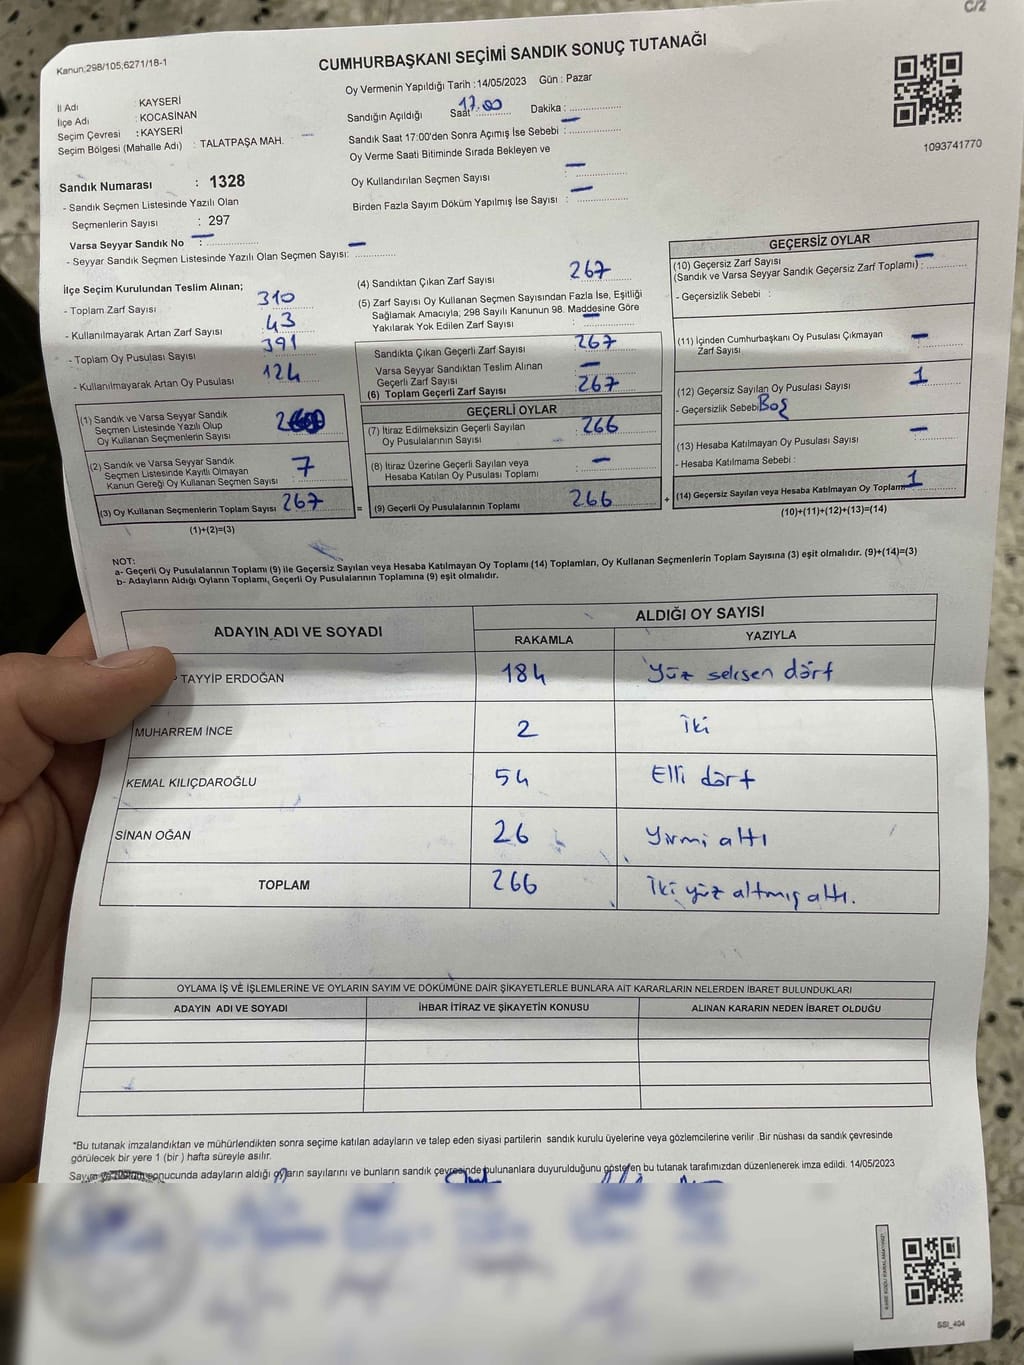 C/2
Kanun;298/105;6271/18-1
CUMHURBAŞKANI SEÇİMİ SANDIK SONUÇ TUTANAĞI
İl Adı : KAYSERİ
İlçe Adı : KOCASİNAN
Seçim Çevresi : KAYSERİ
Seçim Bölgesi (Mahalle Adı) : TALATPAŞA MAH.
Oy Vermenin Yapıldığı Tarih :14/05/2023 Gün : Pazar
Sandığın Açıldığı Saat 17.00 Dakika : —
Sandık Saat 17:00'den Sonra Açımış İse Sebebi :
Oy Verme Saati Bitiminde Sırada Bekleyen ve
Oy Kullandırılan Seçmen Sayısı : —
Birden Fazla Sayım Döküm Yapılmış İse Sayısı : —
1093741770
Sandık Numarası : 1328
- Sandık Seçmen Listesinde Yazılı Olan
Seçmenlerin Sayısı : 297
Varsa Seyyar Sandık No : —
- Seyyar Sandık Seçmen Listesinde Yazılı Olan Seçmen Sayısı: —
İlçe Seçim Kurulundan Teslim Alınan;
- Toplam Zarf Sayısı 310
- Kullanılmayarak Artan Zarf Sayısı : 43
- Toplam Oy Pusulası Sayısı 391
- Kullanılmayarak Artan Oy Pusulası 124
(1) Sandık ve Varsa Seyyar Sandık
Seçmen Listesinde Yazılı Olup
Oy Kullanan Seçmenlerin Sayısı
(2) Sandık ve Varsa Seyyar Sandık
Seçmen Listesinde Kayıtlı Olmayan
Kanun Gereği Oy Kullanan Seçmen Sayısı : 7
(3) Oy Kullanan Seçmenlerin Toplam Sayısı 267
(1)+(2)=(3)
(4) Sandıktan Çıkan Zarf Sayısı 267
(5) Zarf Sayısı Oy Kullanan Seçmen Sayısından Fazla İse, Eşitliği
Sağlamak Amacıyla; 298 Sayılı Kanunun 98. Maddesine Göre
Yakılarak Yok Edilen Zarf Sayısı : —
Sandıkta Çıkan Geçerli Zarf Sayısı : 267
Varsa Seyyar Sandıktan Teslim Alınan
Geçerli Zarf Sayısı : —
(6) Toplam Geçerli Zarf Sayısı : 267
GEÇERLİ OYLAR
(7) İtiraz Edilmeksizin Geçerli Sayılan
Oy Pusulalarının Sayısı : 266
(8) İtiraz Üzerine Geçerli Sayılan veya
Hesaba Katılan Oy Pusulası Toplamı : —
= (9) Geçerli Oy Pusulalarının Toplamı 266 +
GEÇERSİZ OYLAR
(10) Geçersiz Zarf Sayısı
(Sandık ve Varsa Seyyar Sandık Geçersiz Zarf Toplamı) : —
- Geçersizlik Sebebi :
(11) İçinden Cumhurbaşkanı Oy Pusulası Çıkmayan
Zarf Sayısı : —
(12) Geçersiz Sayılan Oy Pusulası Sayısı : 1
- Geçersizlik Sebebi Boş
(13) Hesaba Katılmayan Oy Pusulası Sayısı : —
- Hesaba Katılmama Sebebi :
(14) Geçersiz Sayılan veya Hesaba Katılmayan Oy Toplamı 1
(10)+(11)+(12)+(13)=(14)
NOT:
a- Geçerli Oy Pusulalarının Toplamı (9) ile Geçersiz Sayılan veya Hesaba Katılmayan Oy Toplamı (14) Toplamları, Oy Kullanan Seçmenlerin Toplam Sayısına (3) eşit olmalıdır. (9)+(14)=(3)
b- Adayların Aldığı Oyların Toplamı, Geçerli Oy Pusulalarının Toplamına (9) eşit olmalıdır.
ADAYIN ADI VE SOYADI ALDIĞI OY SAYISI
RAKAMLA YAZIYLA
TAYYİP ERDOĞAN 184 Yüz seksen dört
MUHARREM İNCE 2 İki
KEMAL KILIÇDAROĞLU 54 Elli dört
SİNAN OĞAN 26 Yirmi altı
TOPLAM 266 İki yüz altmış altı.
OYLAMA İŞ VE İŞLEMLERİNE VE OYLARIN SAYIM VE DÖKÜMÜNE DAİR ŞİKAYETLERLE BUNLARA AİT KARARLARIN NELERDEN İBARET BULUNDUKLARI
ADAYIN ADI VE SOYADI İHBAR İTİRAZ VE ŞİKAYETİN KONUSU ALINAN KARARIN NEDEN İBARET OLDUĞU
*Bu tutanak imzalandıktan ve mühürlendikten sonra seçime katılan adayların ve talep eden siyasi partilerin sandık kurulu üyelerine veya gözlemcilerine verilir .Bir nüshası da sandık çevresinde
görülecek bir yere 1 (bir ) hafta süreyle asılır.
Sayım ve döküm sonucunda adayların aldığı oyların sayılarını ve bunların sandık çevresinde bulunanlara duyurulduğunu gösteren bu tutanak tarafımızdan düzenlenerek imza edildi. 14/05/2023
SSI_404